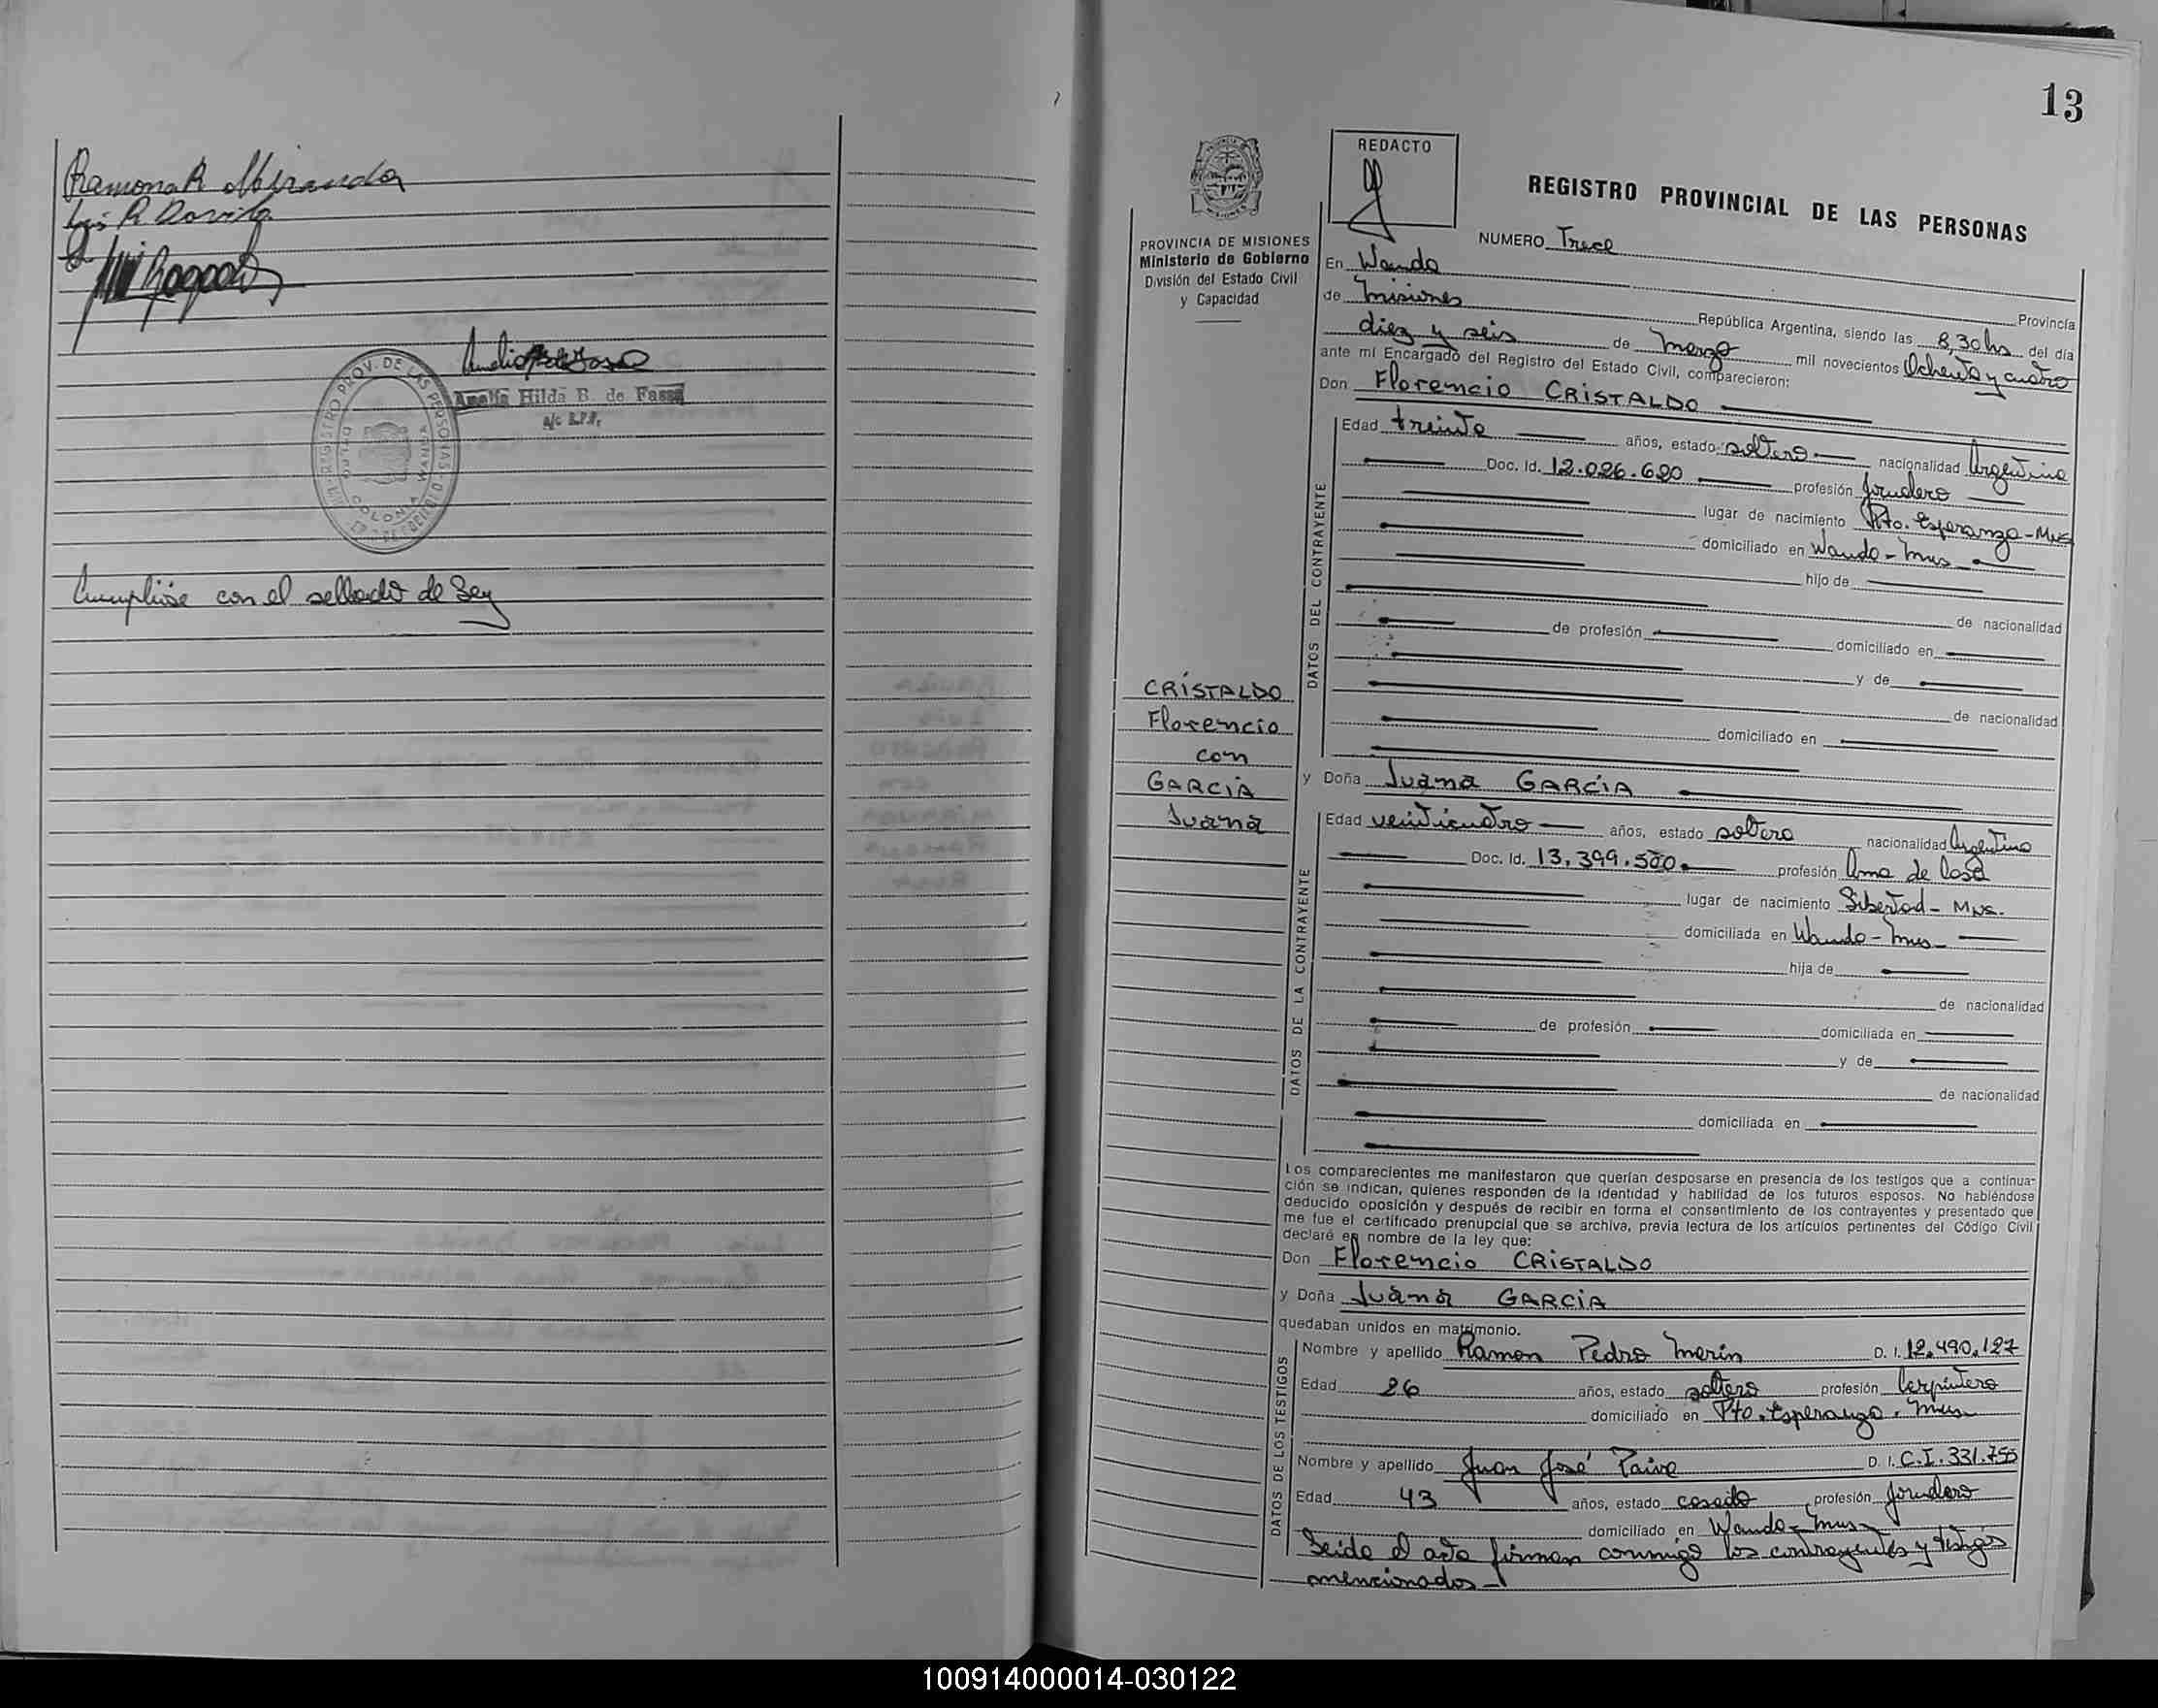 Ramona R Miranda
Luis R Davila
Amalia Hilda B. de Fassa
a/c R.P.P.
REGISTRO PROV. DE LAS PERSONAS
COLONIA WANDA
Cumplióse con el sellado de Ley
13
REDACTO
REGISTRO PROVINCIAL DE LAS PERSONAS
NUMERO Trece
PROVINCIA DE MISIONES
Ministerio de Gobierno
División del Estado Civil
y Capacidad
En Wanda Provincia
de Misiones República Argentina, siendo las 8,30 hs del día
diez y seis de Marzo mil novecientos Ochenta y cuatro
ante mí Encargado del Registro del Estado Civil, comparecieron:
Don Florencio CRISTALDO
DATOS DEL CONTRAYENTE
Edad treinta años, estado soltero nacionalidad Argentina
Doc. Id. 12.026.620 profesión Jornalero
lugar de nacimiento Pto. Esperanza-Mnes
domiciliado en Wanda-Mnes
hijo de
de nacionalidad
de profesión domiciliado en
y de
de nacionalidad
domiciliado en
CRISTALDO
Florencio
con
GARCIA
Juana
y Doña Juana GARCIA
DATOS DE LA CONTRAYENTE
Edad veinticuatro años, estado soltera nacionalidad Argentina
Doc. Id. 13,399.500 profesión Ama de Casa
lugar de nacimiento Libertad-Mns.
domiciliada en Wanda-Mnes
hija de
de nacionalidad
de profesión domiciliada en
y de
de nacionalidad
domiciliada en
Los comparecientes me manifestaron que querían desposarse en presencia de los testigos que a continua-
ción se indican, quienes responden de la identidad y habilidad de los futuros esposos. No habiéndose
deducido oposición y después de recibir en forma el consentimiento de los contrayentes y presentado que
me fue el certificado prenupcial que se archiva, previa lectura de los artículos pertinentes del Código Civil
declaré en nombre de la ley que:
Don Florencio CRISTALDO
y Doña Juana GARCIA
quedaban unidos en matrimonio.
DATOS DE LOS TESTIGOS
Nombre y apellido Ramon Pedro Merin D. I. 12.490.127
Edad 26 años, estado soltero profesión Carpintero
domiciliado en Pto. Esperanza. Mnes
Nombre y apellido Juan José Paiva D. I. C.I. 331.755
Edad 43 años, estado casado profesión Jornalero
domiciliado en Wanda-Mnes
Leida el acta firman conmigo los contrayentes y testigos
mencionados-
100914000014-030122